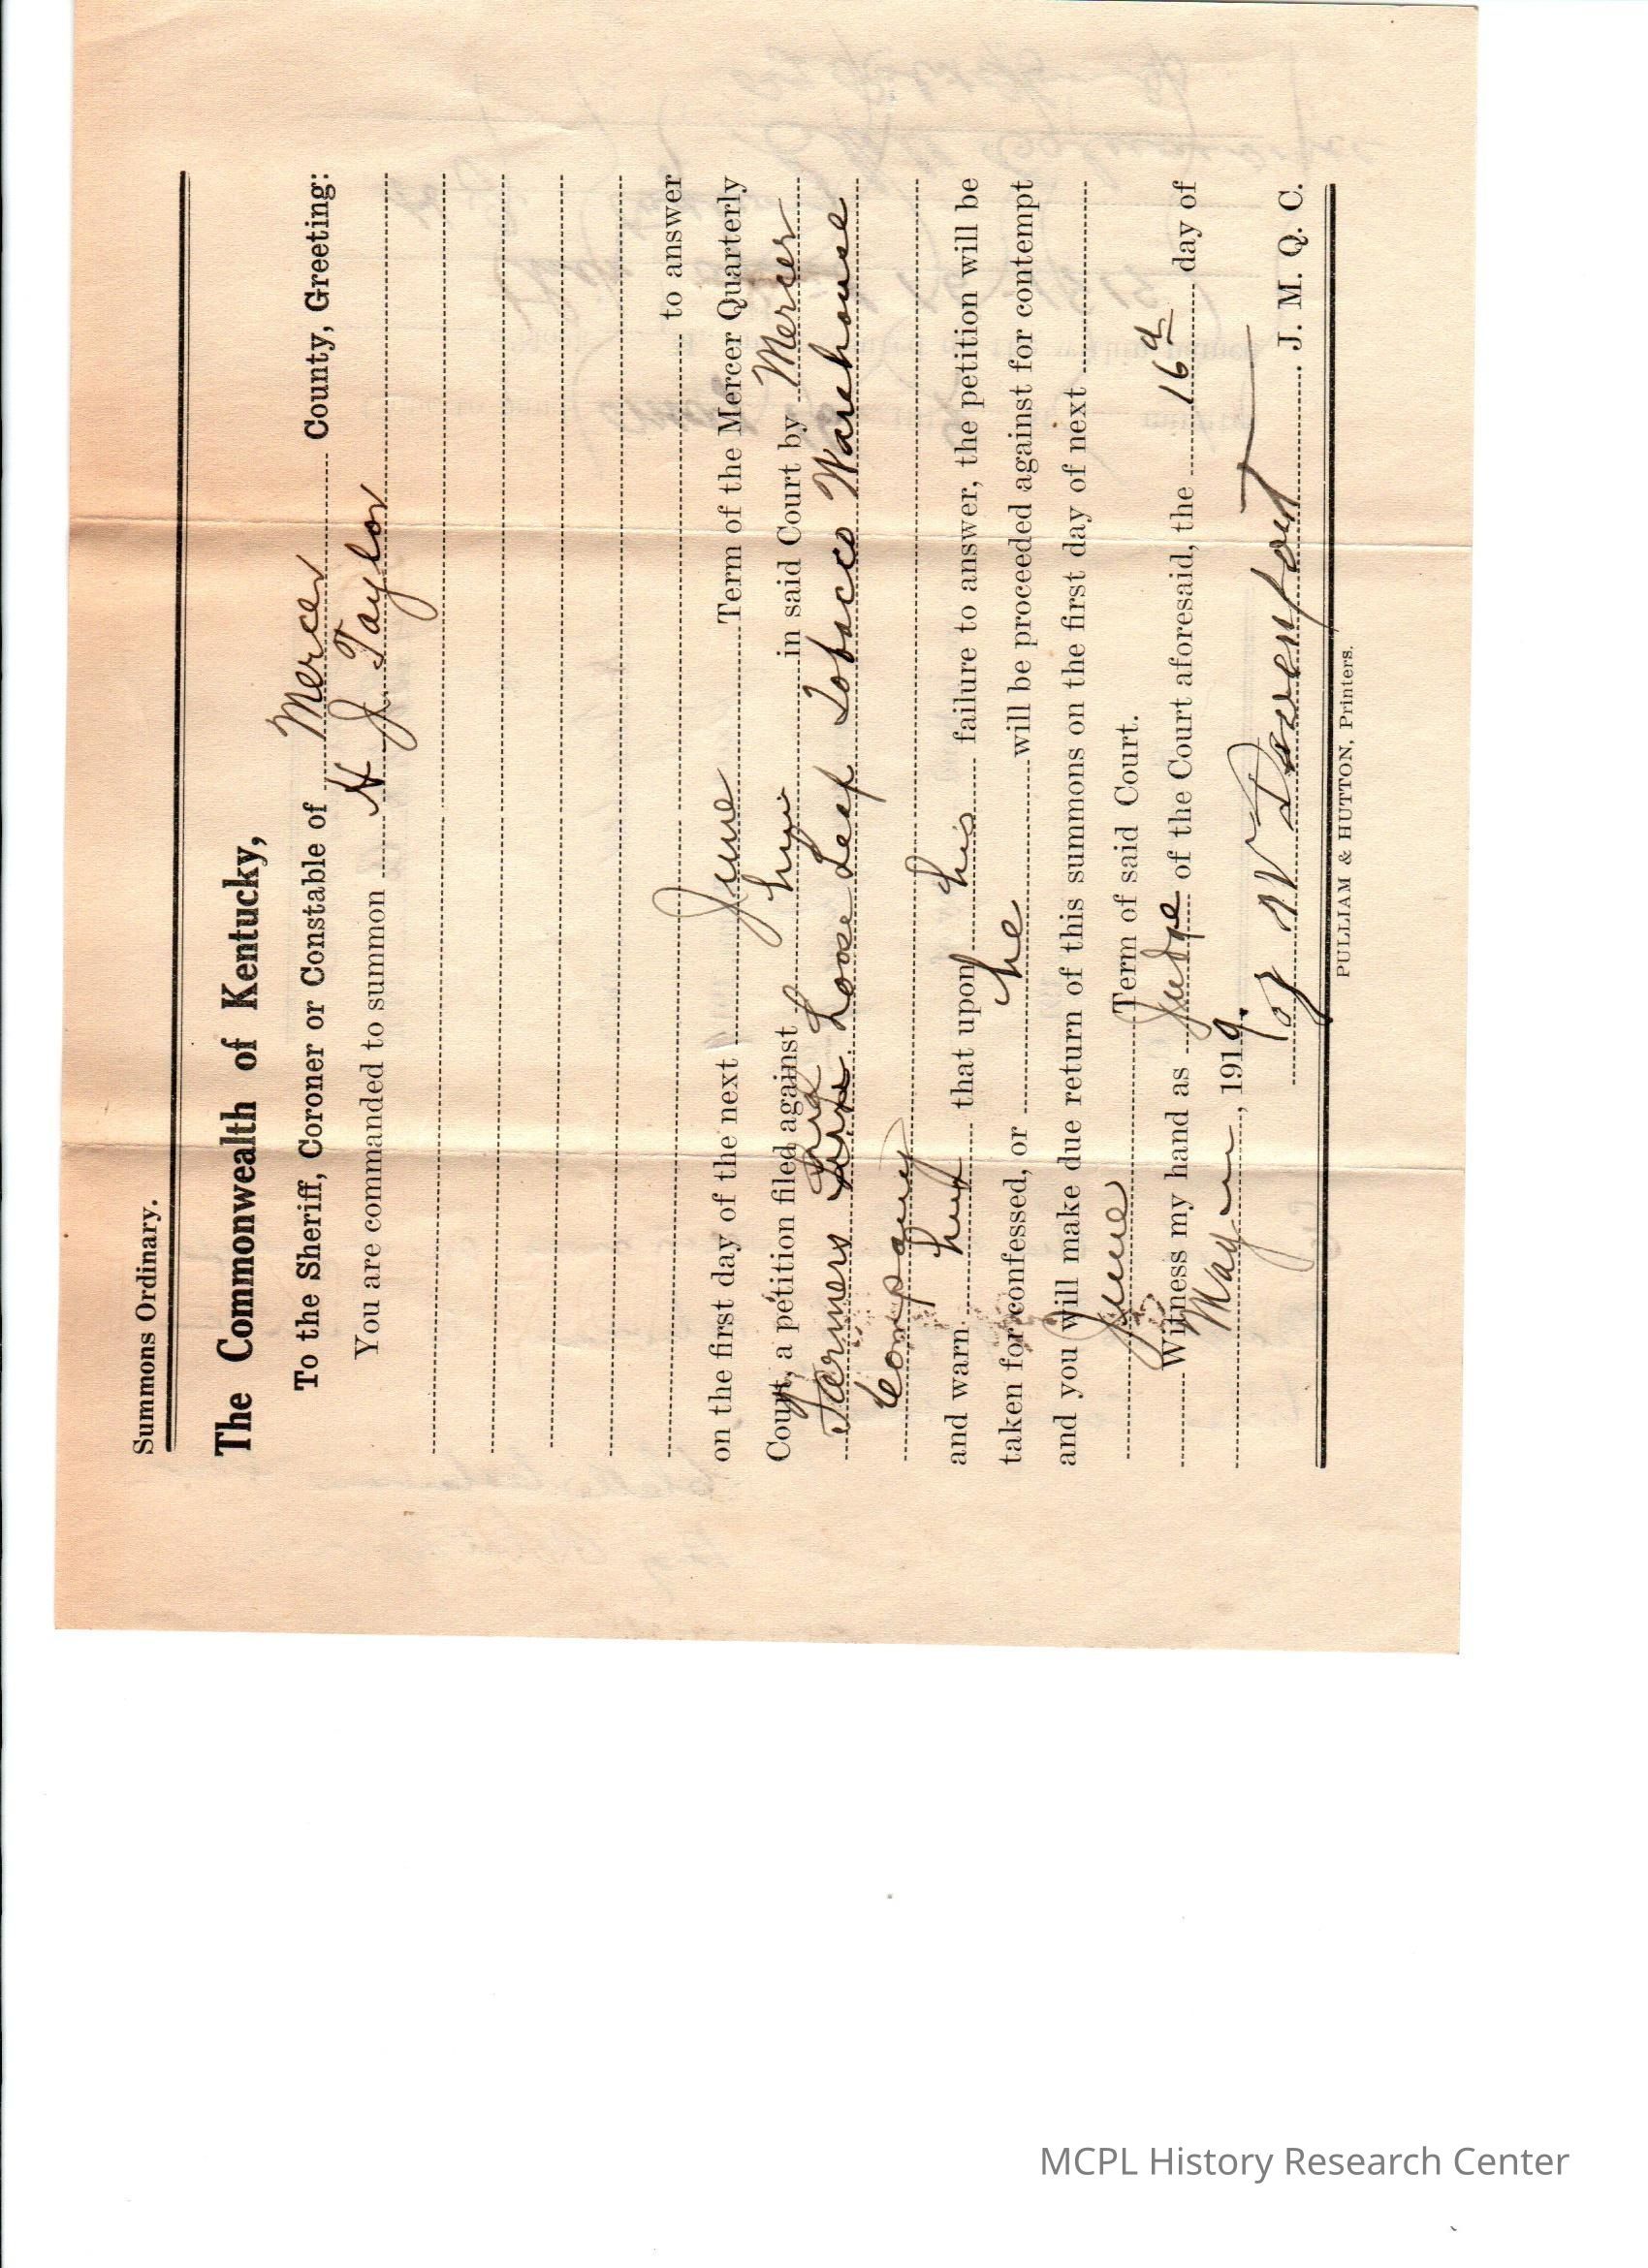 Summons Ordinary.
The Commonwealth of Kentucky,
To the Sheriff, Coroner or Constable of Mercer County, Greeting:
You are commanded to summon H J Taylor
to answer
on the first day of the next June Term of the Mercer Quarterly
Court, a petition filed against him in said Court by Mercer
Farmers Loose Leaf Tobacco Warehouse
Company
and warn him that upon his failure to answer, the petition will be
taken for confessed, or he will be proceeded against for contempt
and you will make due return of this summons on the first day of next
June Term of said Court.
Witness my hand as Judge of the Court aforesaid, the 16th day of
May, 1919.
W Davenport J. M. Q. C.
PULLIAM & HUTTON, Printers.
MCPL History Research Center